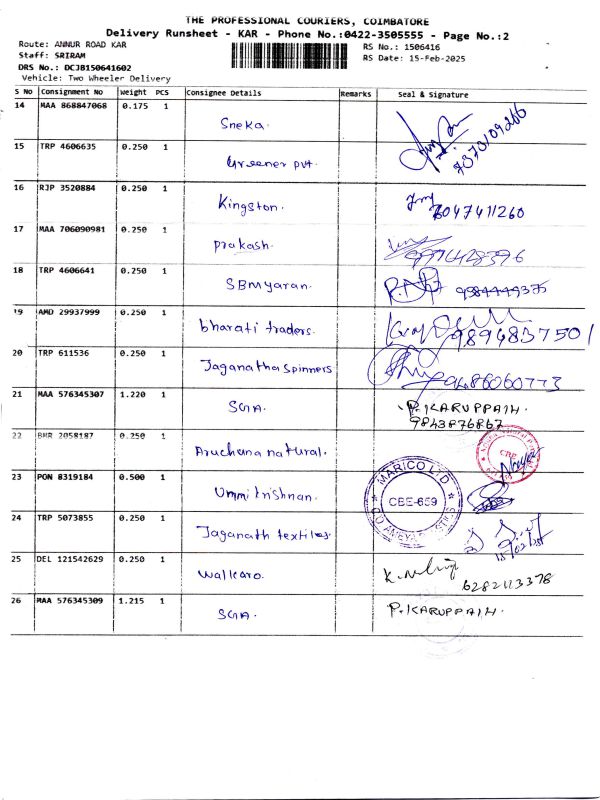 THE PROFESSIONAL COURIERS, COIMBATORE
Delivery Runsheet - KAR - Phone No.:0422-3505555 - Page No.:2
Route: ANNUR ROAD KAR
RS No.: 1506416
Staff: SRIRAM
RS Date: 15-Feb-2025
DRS No.: DCJB150641602
Vehicle: Two Wheeler Delivery
S No Consignment No Weight PCS Consignee Details Remarks Seal & Signature
14 MAA 868847068 0.175 1 Sneka. 7373109266
15 TRP 4606635 0.250 1 Greener pvt.
16 RJP 3520884 0.250 1 Kingston. 8047411260
17 MAA 706090981 0.250 1 prakash. 9976428396
18 TRP 4606641 0.250 1 SBmyaran. 9384449375
19 AMD 29937999 0.250 1 bharati traders. 9894837501
20 TRP 611536 0.250 1 Jaganatha spinners 9486060773
21 MAA 576345307 1.220 1 SGIA. P. KARUPPAIH
9843876867
22 BHR 2058187 0.250 1 Aruchana natural. CBE
23 PON 8319184 0.500 1 Ummikrishnan. MARICO LTD
CBE-659
24 TRP 5073855 0.250 1 Jaganath textiles.
25 DEL 121542629 0.250 1 walkaro. 6282113378
26 MAA 576345309 1.215 1 SGIA. P. KARUPPAIH.